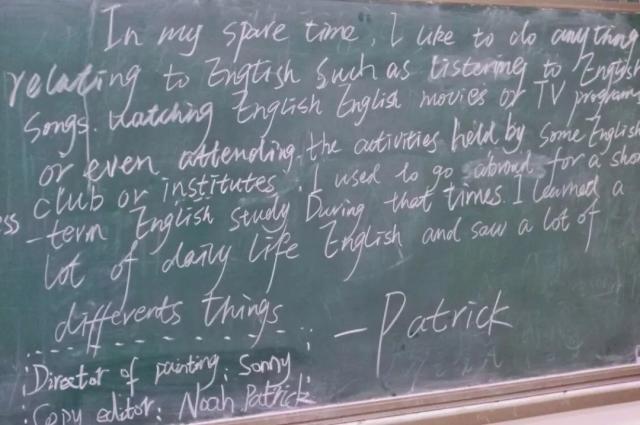 In my spare time, I like to do anything
relating to English such as listening to English
songs. watching English English movies or TV program
or even attending the activities held by some English
club or institutes. I used to go abroad for a sho
ss -term English study During that times. I learned a
lot of daily life English and saw a lot of
differents things
-Patrick
Director of painting: Sonny
Copy editor: Noah Patrick